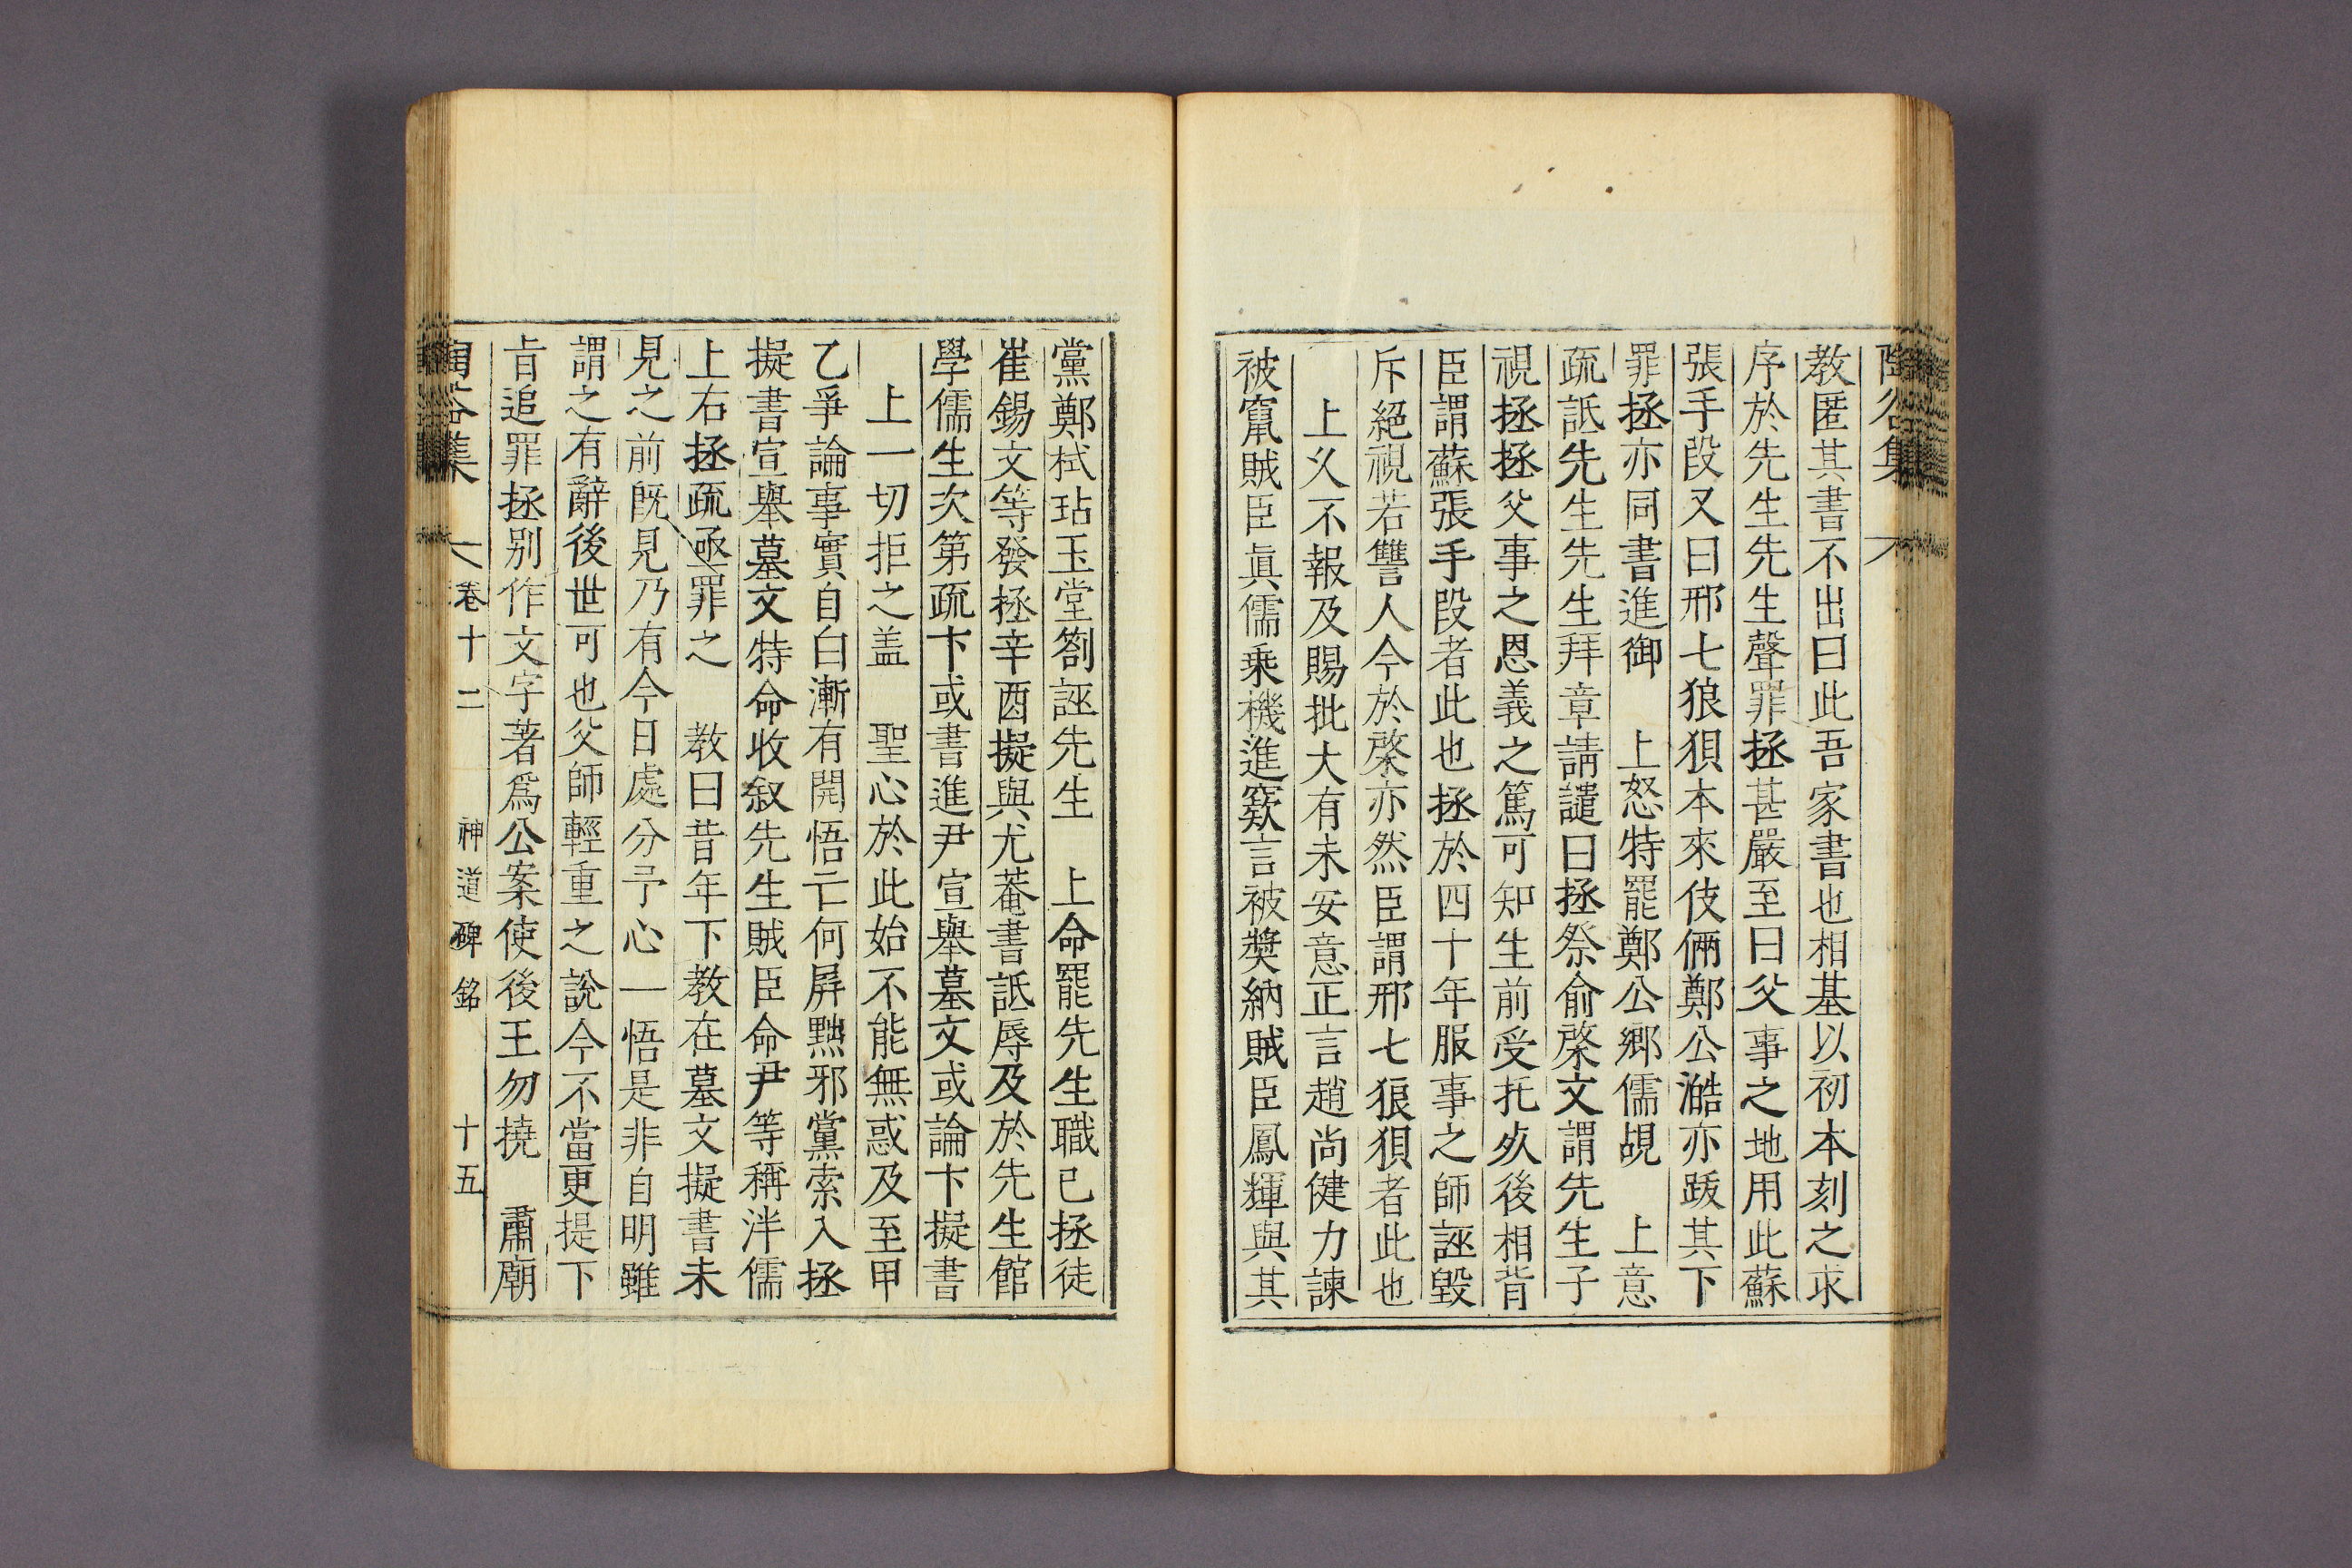 陶谷集
教匿其書不出曰此吾家書也相基以初本刻之求
序於先生先生聲罪拯甚嚴至曰父事之地用此蘇
張手段又曰邢七狼狽本來伎倆鄭公澔亦跋其下
罪拯亦同書進御　上怒特罷鄭公鄉儒覘　上意
疏詆先生先生拜章請譴曰拯祭俞棨文謂先生子
視拯拯父事之恩義之篤可知生前受托死後相背
臣謂蘇張手段者此也拯於四十年服事之師誣毀
斥絕視若讐人今於棨亦然臣謂邢七狼狽者此也
上久不報及賜批大有未安意正言趙尚健力諫
被竄賊臣眞儒乘機進欵言被奬納賊臣鳳輝與其
黨鄭栻玷玉堂劄誣先生　上命罷先生職已拯徒
崔錫文等發拯辛酉擬與尤菴書詆辱及於先生館
學儒生次第疏卞或書進尹宣舉墓文或論卞擬書
上一切拒之盖　聖心於此始不能無惑及至甲
乙爭論事實自白漸有開悟亡何屏黜邪黨索入拯
擬書宣舉墓文特命收叙先生賊臣命尹等稱泮儒
上右拯疏亟罪之　教曰昔年下教在墓文擬書未
見之前旣見乃有今日處分予心一悟是非自明雖
謂之有辭後世可也父師輕重之說今不當更提下
旨追罪拯別作文字著爲公案使後王勿撓　肅廟
陶谷集　卷十二　神道碑銘　十五